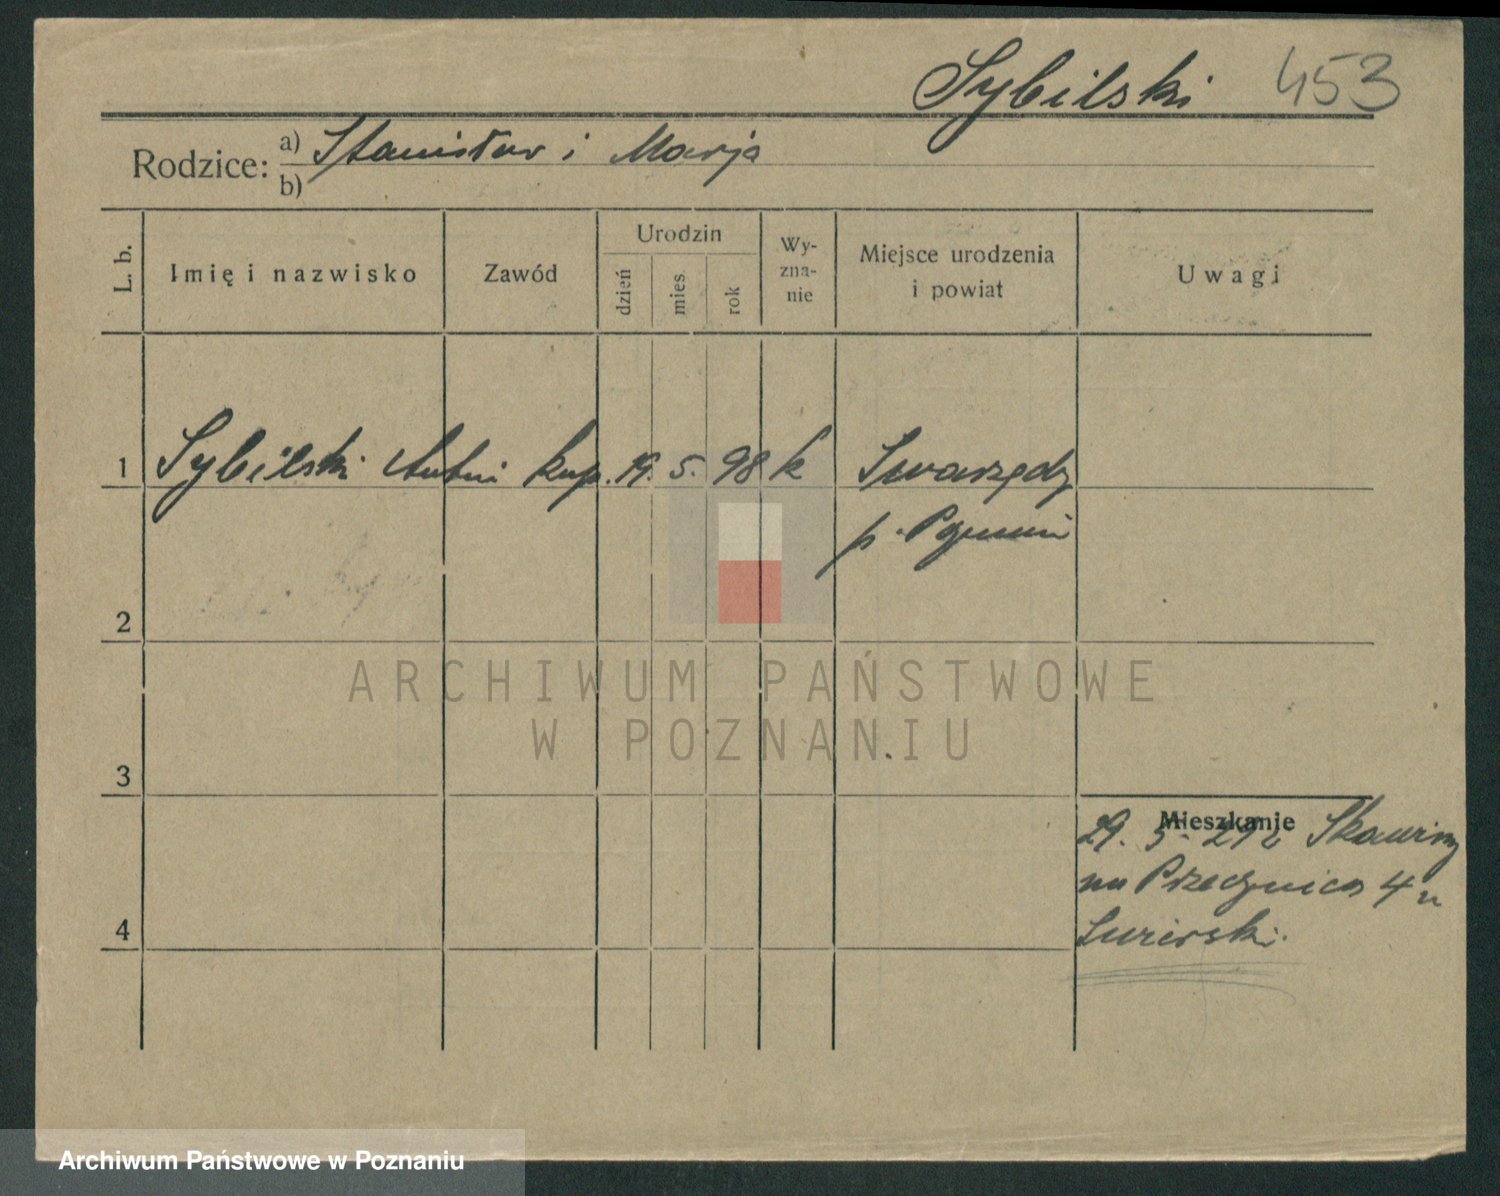 Sybilski 453
Rodzice: a) Stanisław i Marja
b)
L. b. Imię i nazwisko Zawód Urodzin dzień mies rok Wy-zna-nie Miejsce urodzenia i powiat Uwagi
1 Sybilski Antoni kup. 19. 5. 98 k Swarzędz
p. Poznań
2
ARCHIWUM PAŃSTWOWE
W POZNANIU
3
Mieszkanie
29. 5.
na 4 u
4
Archiwum Państwowe w Poznaniu